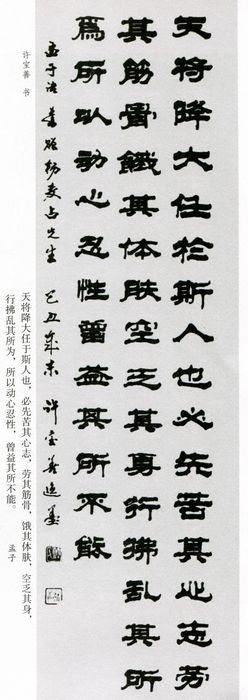 天将降大任於斯人也必先苦其心志劳
其筋骨餓其体肤空乏其身行拂乱其所
為所以动心忍性曾益其所不能
孟子语 先生 己丑歲末 许宝善
许宝善 书
天将降大任于斯人也，必先苦其心志，劳其筋骨，饿其体肤，空乏其身，
行拂乱其所为，所以动心忍性，曾益其所不能。
孟子